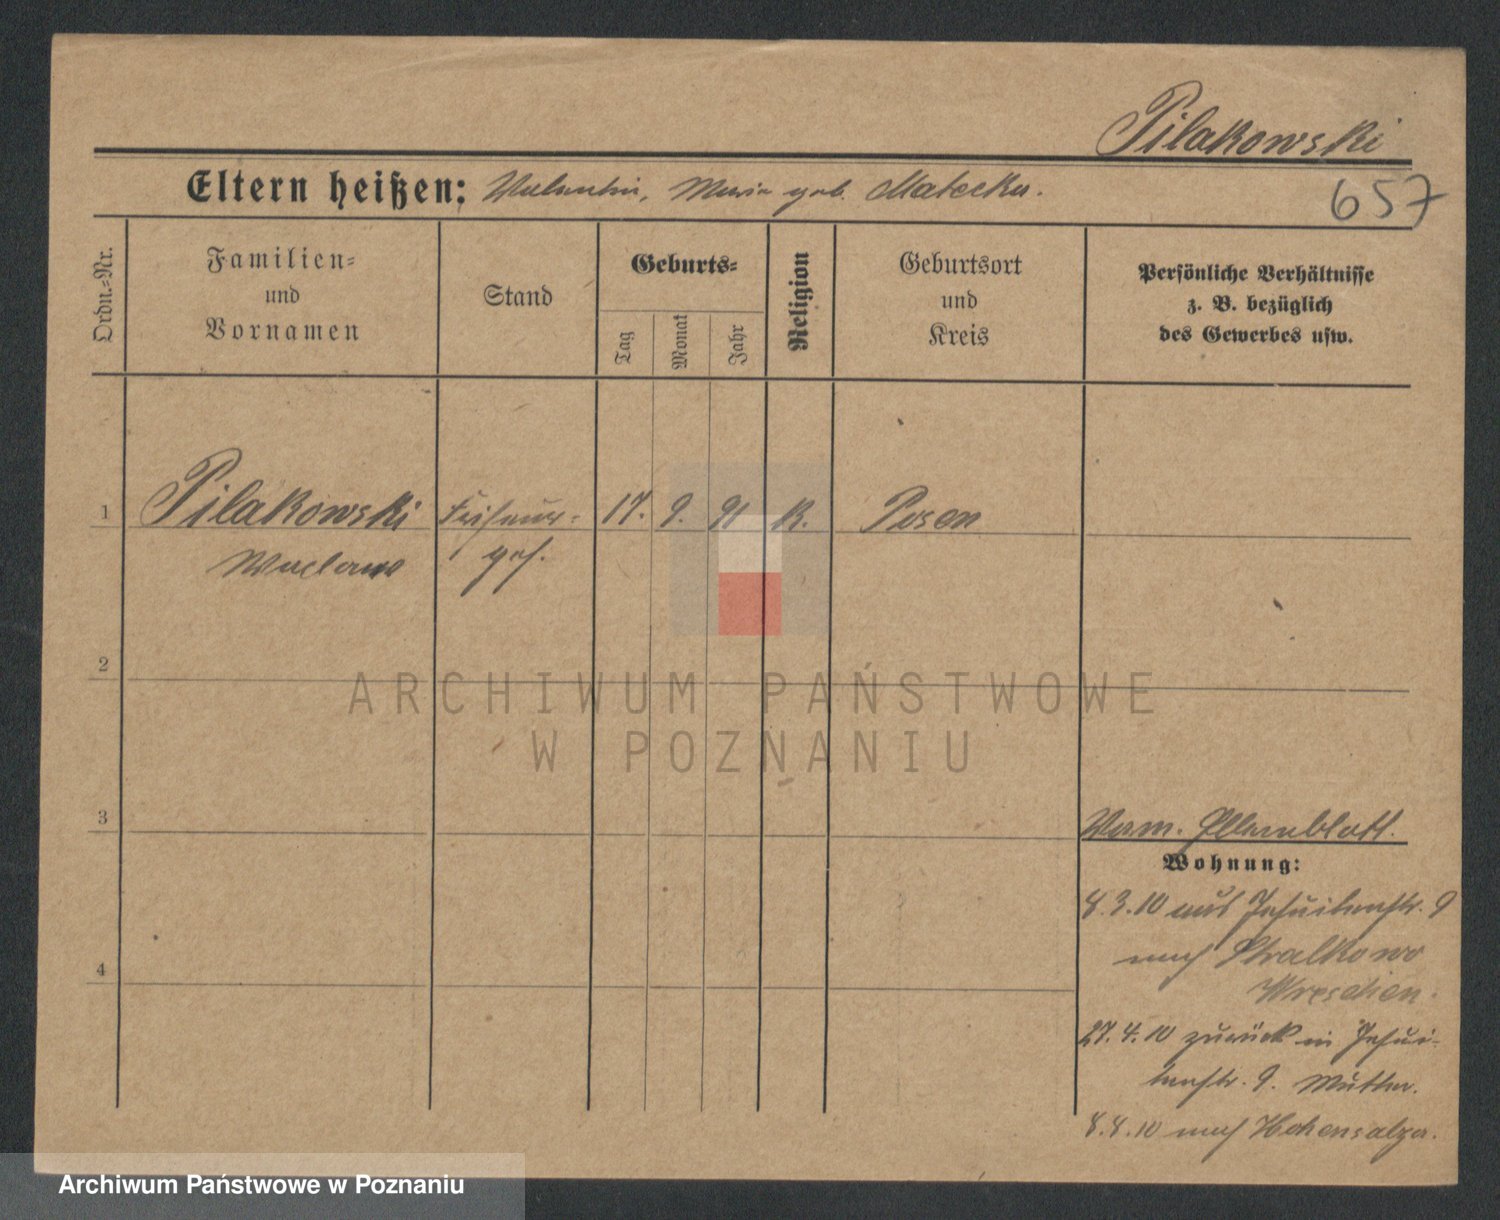 Pilakowski
Eltern heißen: Valentin, Maria geb. Matecka.
657
Ordn.-Nr.
Familien-
und
Vornamen
Stand
Geburts-
Tag
Monat
Jahr
Religion
Geburtsort
und
Kreis
Persönliche Verhältnisse
z. B. bezüglich
des Gewerbes usw.
1 Pilakowski Friseur- 17. 9. 91 K. Posen
Waclaw ges.
2
3
4
Wohnung:
8.3.10 aus Jesuitenstr. 9
nach Stralkowo
Wreschen.
27.4.10 zurück in Jesui-
tenstr. 9. Mutter.
8.8.10 nach Hohensalza.
ARCHIWUM PAŃSTWOWE
W POZNANIU
Archiwum Państwowe w Poznaniu